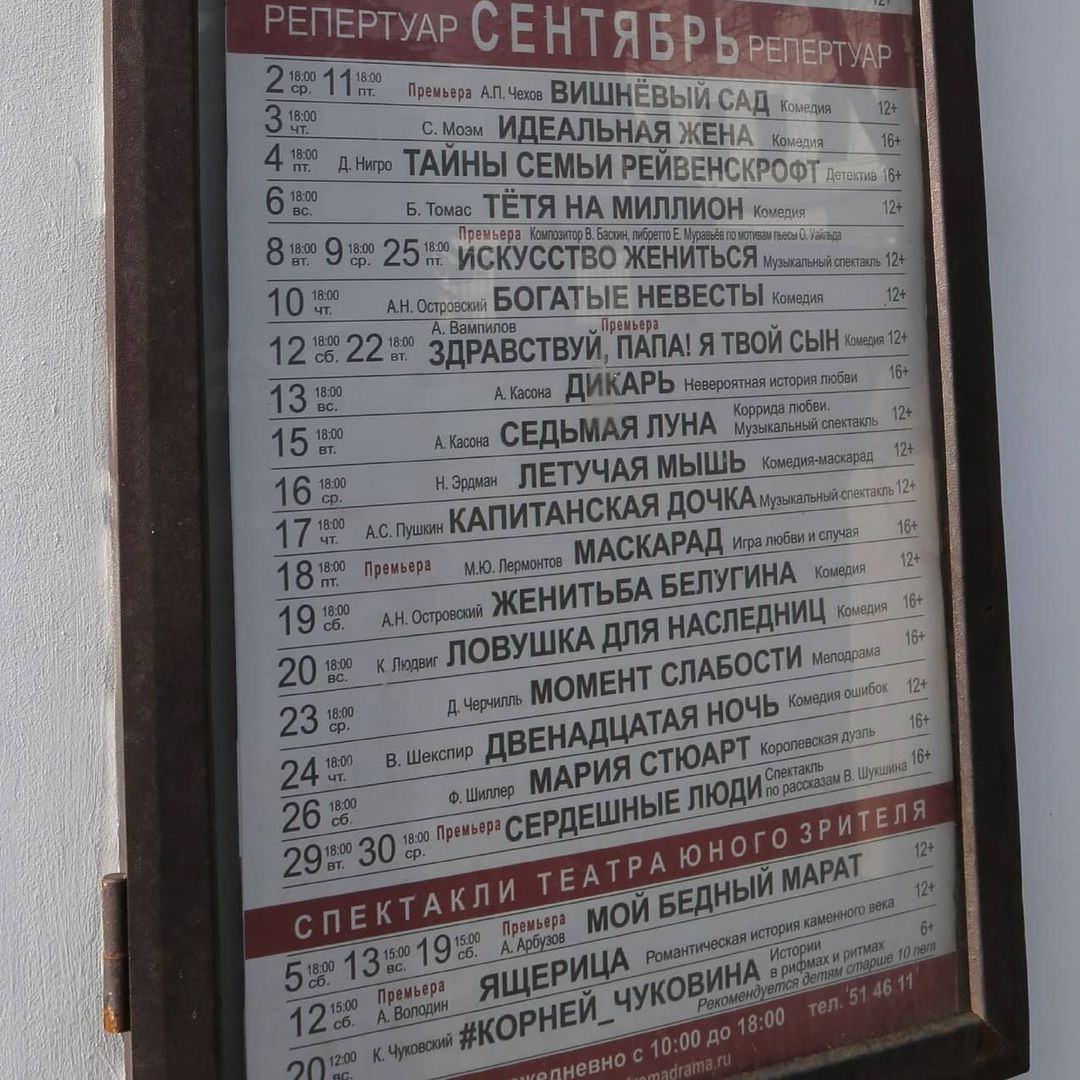 12+
РЕПЕРТУАР СЕНТЯБРЬ РЕПЕРТУАР
2 18:00 ср. 11 18:00 пт. Премьера А.П. Чехов ВИШНЁВЫЙ САД Комедия 12+
3 18:00 чт. С. Моэм ИДЕАЛЬНАЯ ЖЕНА Комедия 16+
4 18:00 пт. Д. Нигро ТАЙНЫ СЕМЬИ РЕЙВЕНСКРОФТ Детектив 16+
6 18:00 вс. Б. Томас ТЁТЯ НА МИЛЛИОН Комедия 12+
Премьера Композитор В. Баскин, либретто Е. Муравьёв по мотивам пьесы О. Уайльда
8 18:00 вт. 9 18:00 ср. 25 18:00 пт. ИСКУССТВО ЖЕНИТЬСЯ Музыкальный спектакль 12+
10 18:00 чт. А.Н. Островский БОГАТЫЕ НЕВЕСТЫ Комедия 12+
А. Вампилов Премьера
12 18:00 сб. 22 18:00 вт. ЗДРАВСТВУЙ, ПАПА! Я ТВОЙ СЫН Комедия 12+
13 18:00 вс. А. Касона ДИКАРЬ Невероятная история любви 16+
15 18:00 вт. А. Касона СЕДЬМАЯ ЛУНА Коррида любви. Музыкальный спектакль 12+
16 18:00 ср. Н. Эрдман ЛЕТУЧАЯ МЫШЬ Комедия-маскарад 12+
17 18:00 чт. А.С. Пушкин КАПИТАНСКАЯ ДОЧКА Музыкальный спектакль 12+
18 18:00 пт. Премьера М.Ю. Лермонтов МАСКАРАД Игра любви и случая 16+
19 18:00 сб. А.Н. Островский ЖЕНИТЬБА БЕЛУГИНА Комедия 12+
20 18:00 вс. К. Людвиг ЛОВУШКА ДЛЯ НАСЛЕДНИЦ Комедия 16+
23 18:00 ср. Д. Черчилль МОМЕНТ СЛАБОСТИ Мелодрама 16+
24 18:00 чт. В. Шекспир ДВЕНАДЦАТАЯ НОЧЬ Комедия ошибок 12+
26 18:00 сб. Ф. Шиллер МАРИЯ СТЮАРТ Королевская дуэль 16+
29 18:00 вт. 30 18:00 ср. Премьера СЕРДЕШНЫЕ ЛЮДИ Спектакль по рассказам В. Шукшина 16+
СПЕКТАКЛИ ТЕАТРА ЮНОГО ЗРИТЕЛЯ
5 18:00 сб. 13 15:00 вс. 19 15:00 сб. Премьера А. Арбузов МОЙ БЕДНЫЙ МАРАТ 12+
12 15:00 сб. Премьера А. Володин ЯЩЕРИЦА Романтическая история каменного века 12+
20 12:00 вс. К. Чуковский #КОРНЕЙ_ЧУКОВИНА Истории в рифмах и ритмах 6+
Рекомендуется детям старше 10 лет
с 10:00 до 18:00 тел. 51 46 11